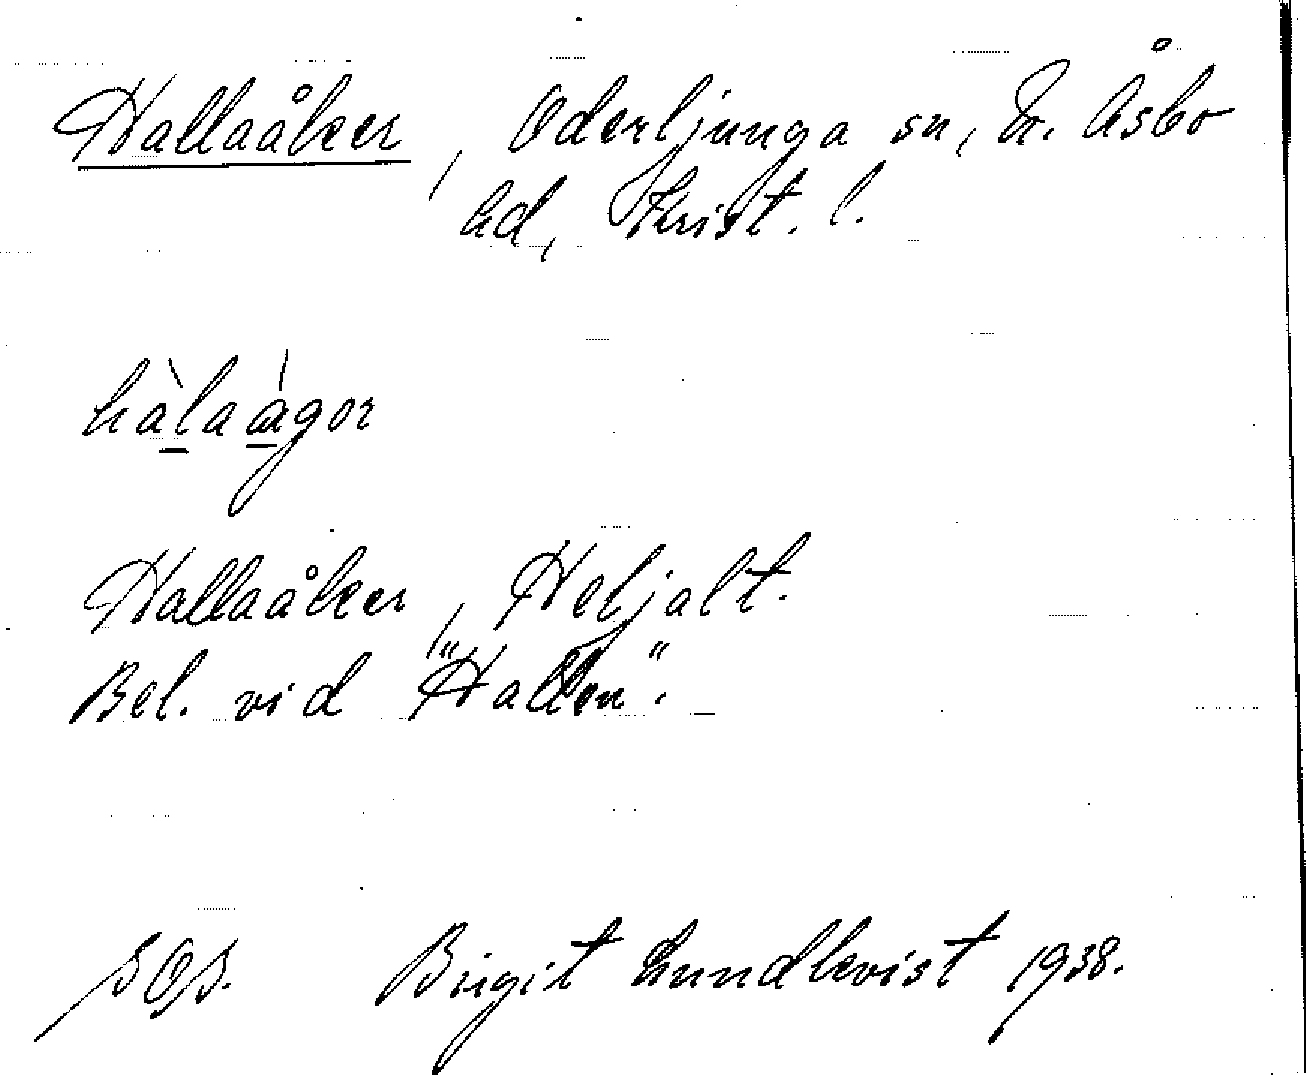 Hallaåker, Oderljunga sn, N. Åsbo
hd, Krist. l.
hàlaágor
Hallaåker, Heljalt.
Bel. vid "Hallen".
SOS. Birgit Lundkvist 1938.